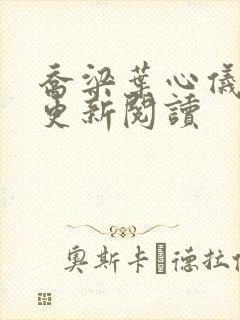 喬梁葉心儀
更新閱讀
奧斯卡·德拉